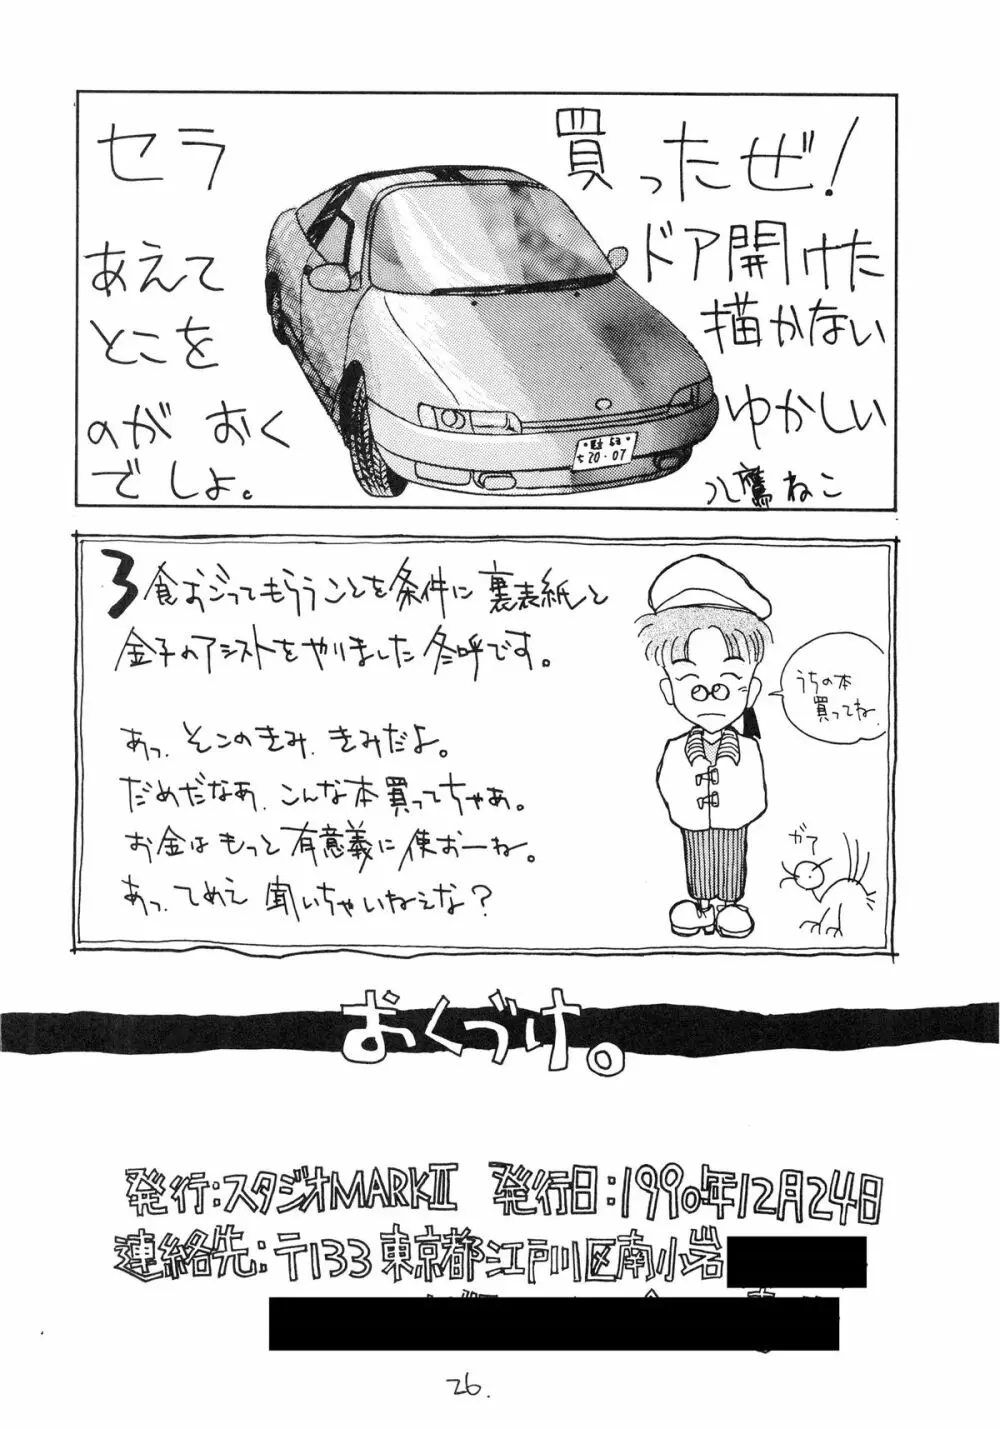 セラ 買ったぜ!
あえて ドア開けた
とこを 描かない
のが おく ゆかしい
でしょ。 八鷹ねこ
3食おごってもらうことを条件に 裏表紙と
金子のアシストをやりました冬呼です。
あっ、そこのきみ、きみだよ。
だめだなあ、こんな本買ってちゃあ。
お金はもっと有意義に使おーね。
あっ、てめえ 聞いちゃいねぇな?
うちの本
買ってね
ガて
おくづけ。
発行:スタジオMARKII 発行日:1990年12月24日
連絡先:〒133 東京都江戸川区南小岩
26.